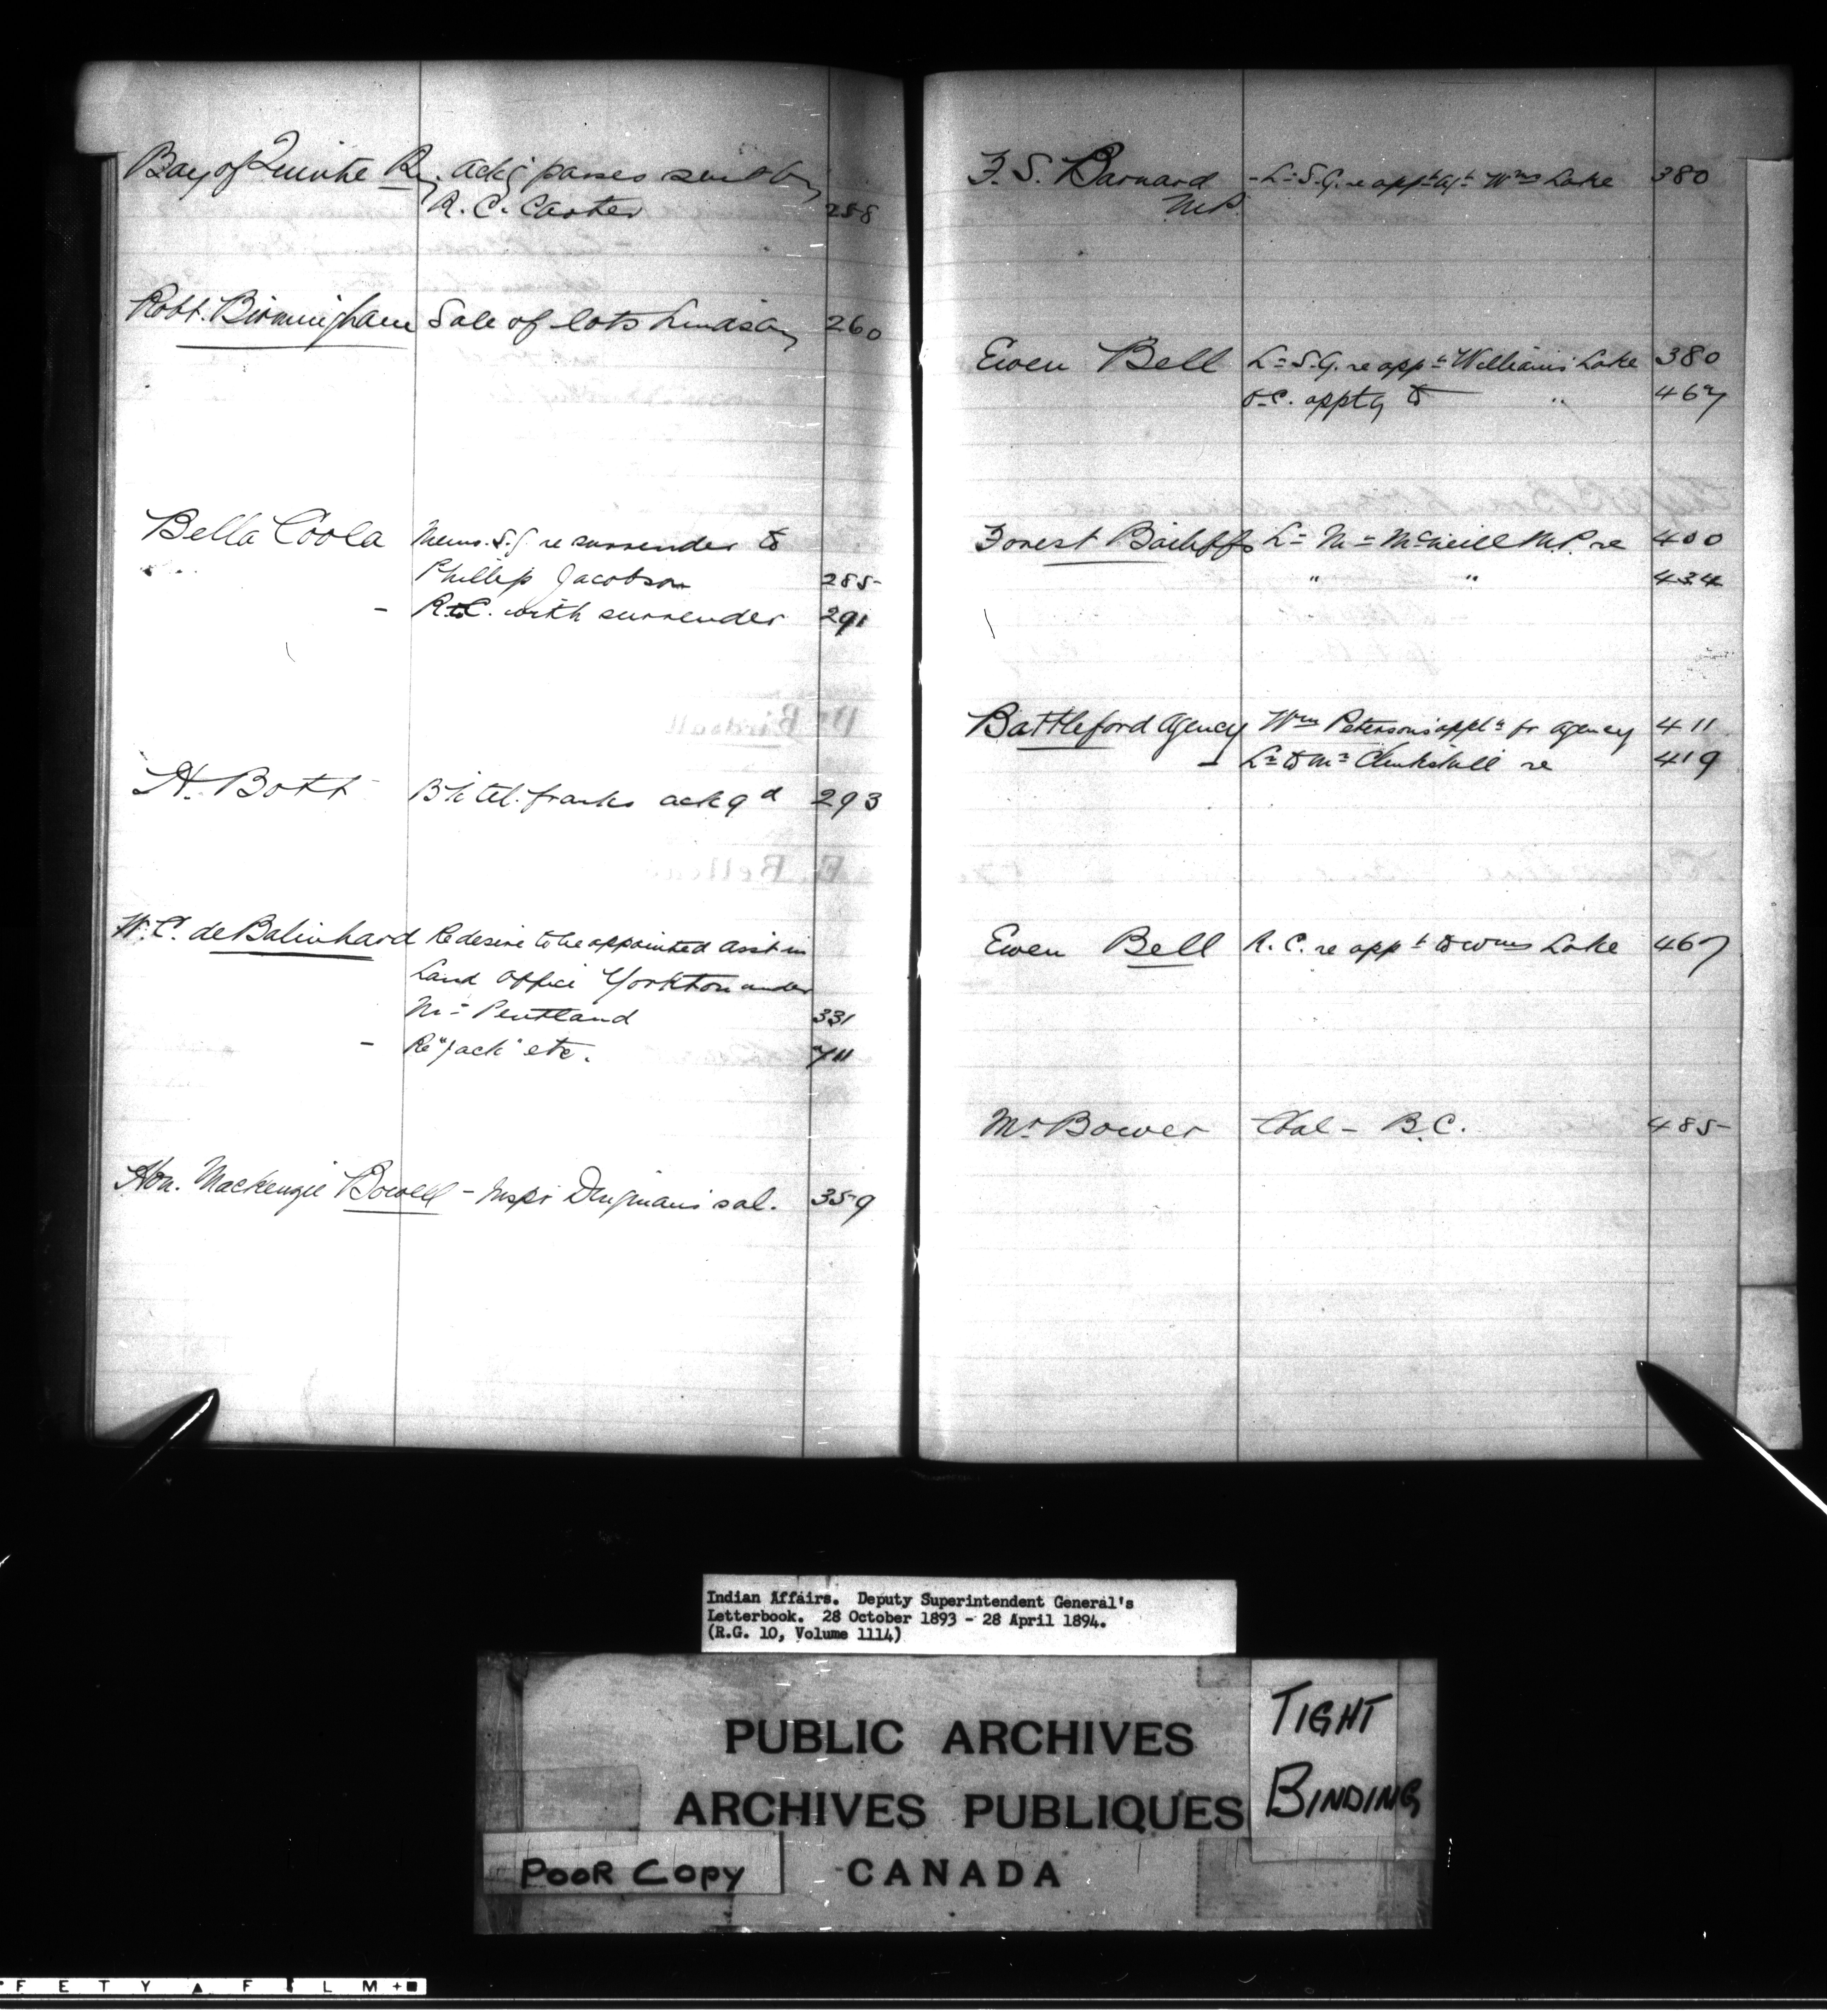 Bay of Quinte Ry. ackg passes sent by
R. C. Carter 258
Robt. Birmingham Sale of lots Lindsay 260
Bella Coola Memo. S.G. re surrender to
Phillip Jacobson 285
- R to C. with surrender 291
H. Bott B. tel. franks ackgd 293
W. C. de Balinhard Re desire to be appointed Asst in
Land Office Yorkton under
Mr Pentland 331
- Re "Jack" etc. 711
Hon. Mackenzie Bowell - Inspr Dingman's sal. 359
F. S. Barnard - Lr S.G. re appt agt Wms Lake 380
M.P.
Ewen Bell Lr S.G. re appt Williams Lake 380
O.C. apptg to " 467
Forest Bailiffs Lr Mr McNeill M.P. re 400
" " 434
Battleford Agency Wm Peterson's applt for agency 411
- Lr to Mr Clinkskill re 419
Ewen Bell R. C. re appt to Wms Lake 467
Mr Bower Coal - B.C. 485
Indian Affairs. Deputy Superintendent General's
Letterbook. 28 October 1893 - 28 April 1894.
(R.G. 10, Volume 1114)
PUBLIC ARCHIVES
ARCHIVES PUBLIQUES
CANADA
TIGHT
BINDING
POOR COPY
FETY FILM